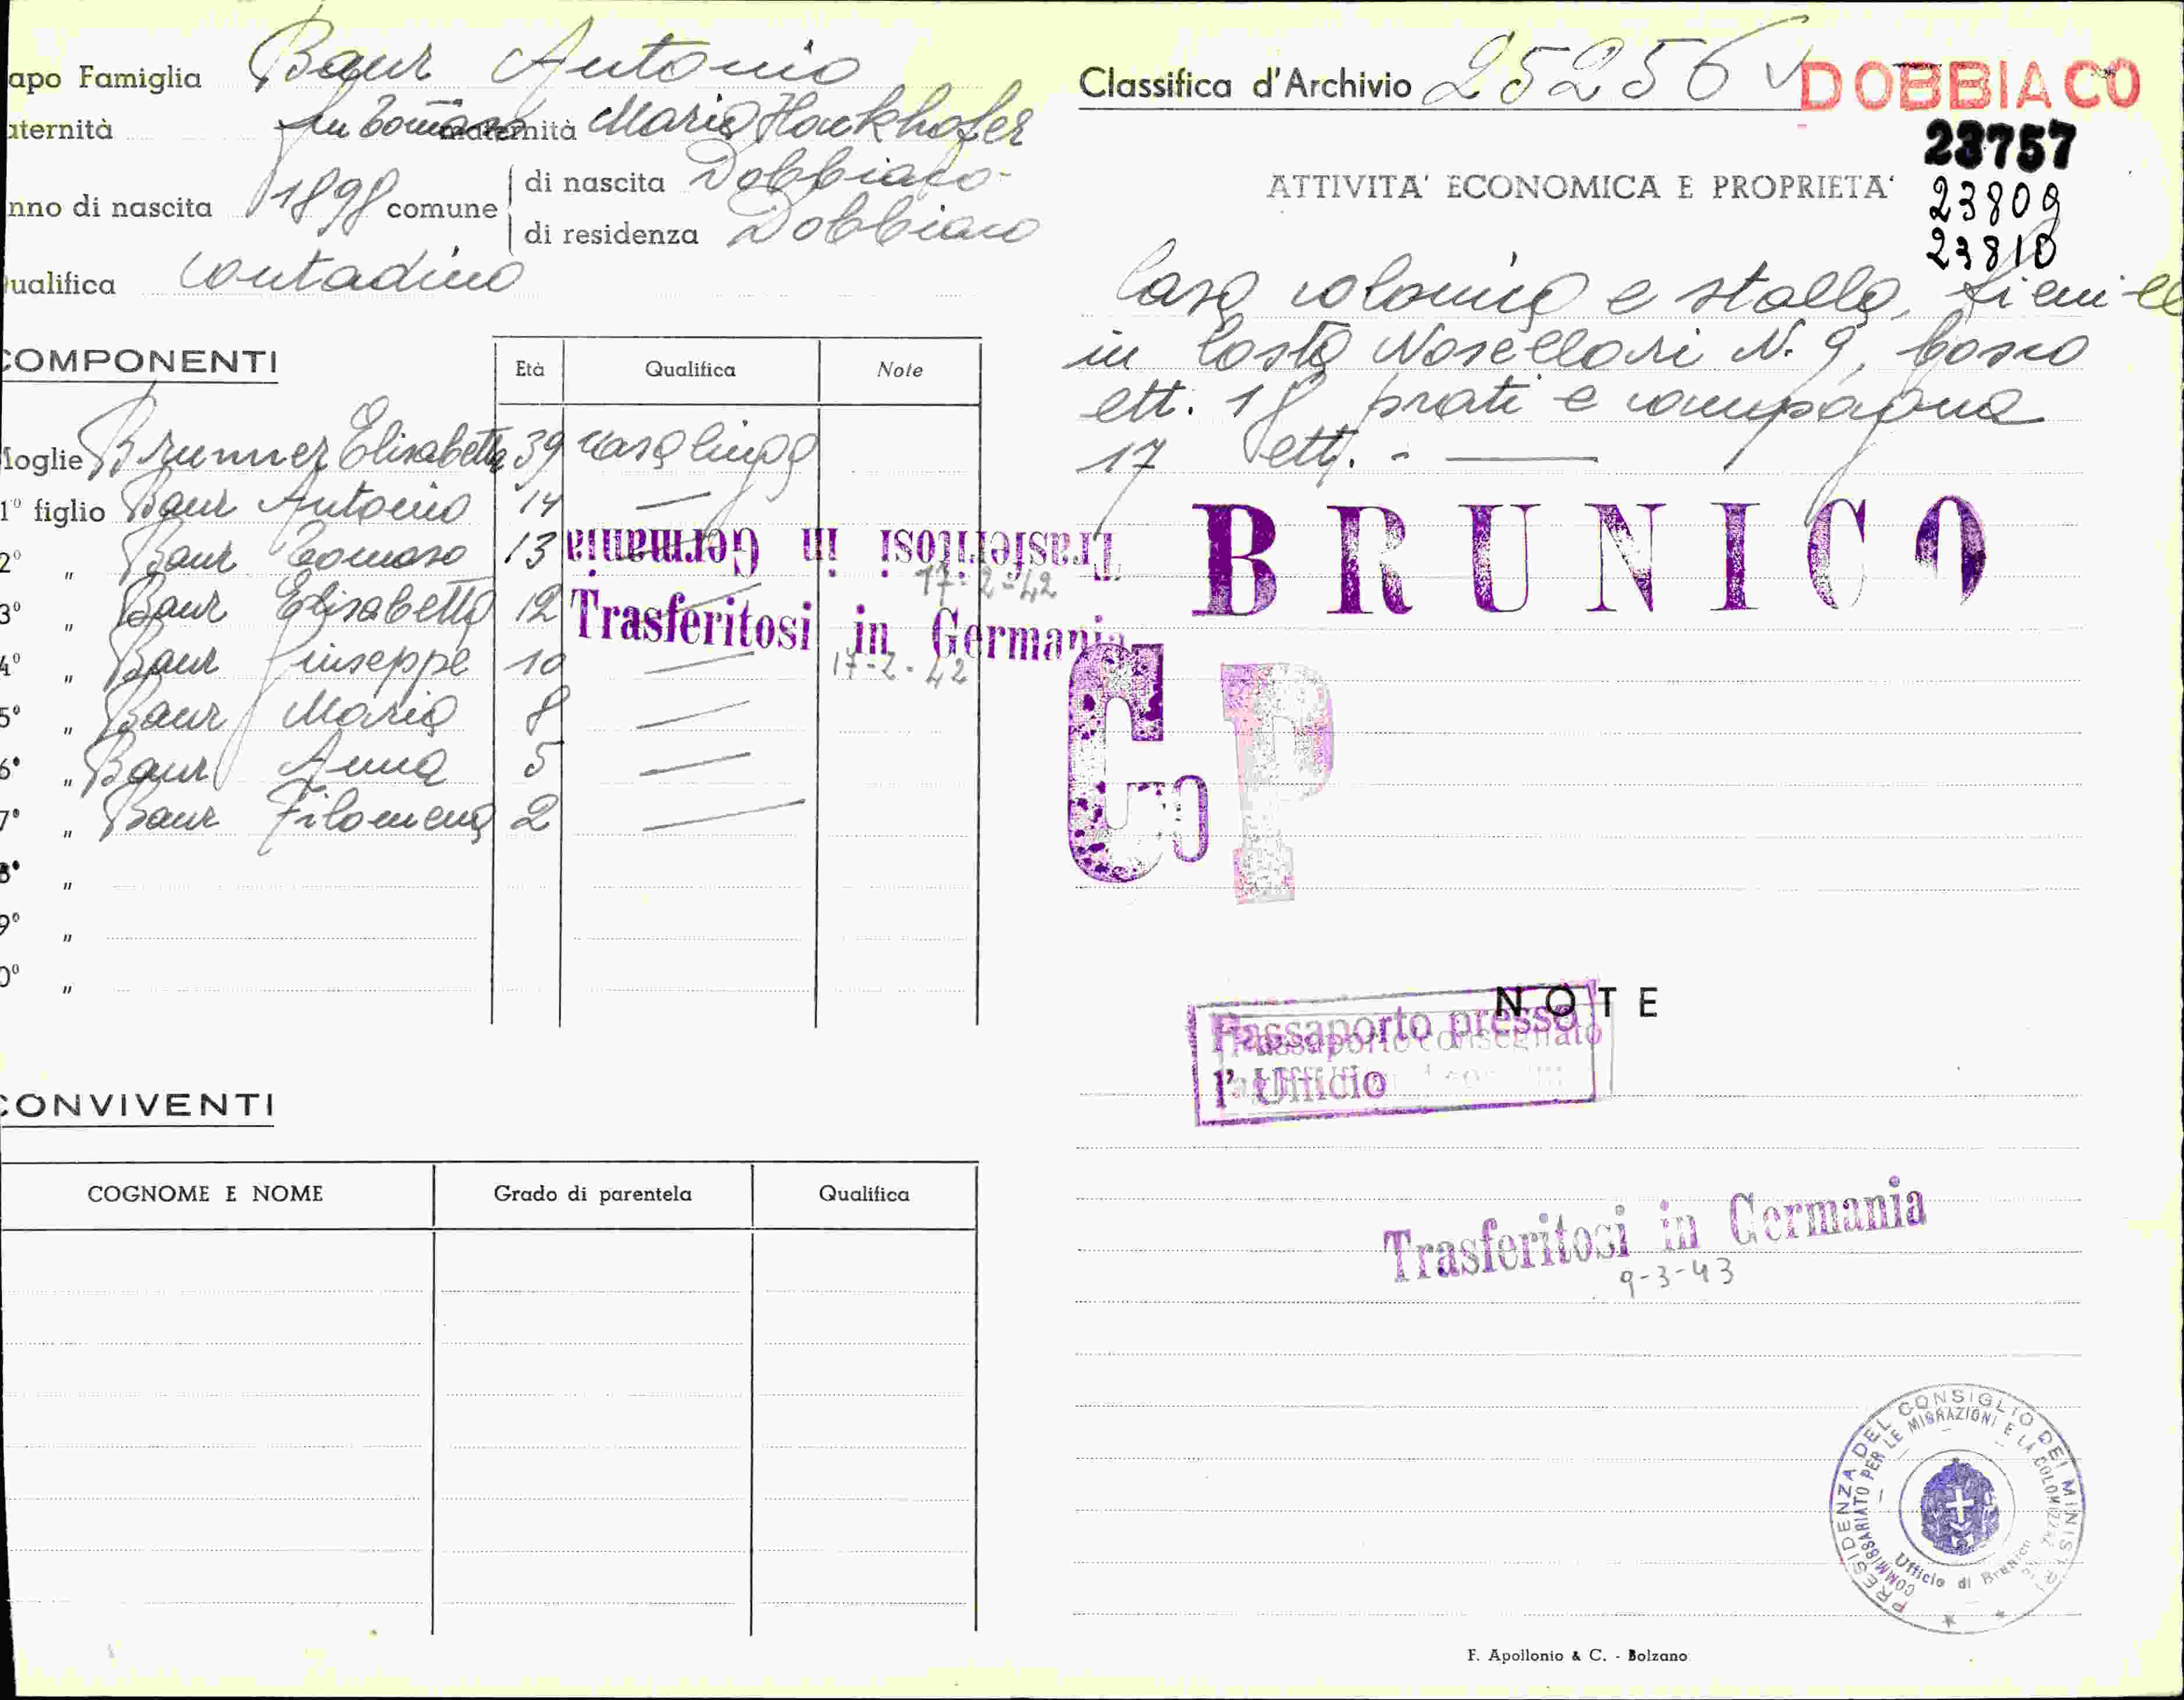 apo Famiglia Baur Antonio
aternità fu Tomaso maternità Maria Hackhofer
nno di nascita 1898 comune di nascita Dobbiaco
di residenza Dobbiaco
ualifica contadino
COMPONENTI
Età Qualifica Note
Moglie Brunner Elisabetta 39 casalinga
1º figlio Baur Antonio 14 —
2º " Baur Tomaso 13 Trasferitosi in Germania
17-2-42
3º " Baur Elisabetta 12 Trasferitosi in Germania
4º " Baur Giuseppe 10 — 17-2-42
5º " Baur Maria 8 —
6º " Baur Anna 5 —
7º " Baur Filomena 2 —
8º "
9º "
0º "
CONVIVENTI
COGNOME E NOME Grado di parentela Qualifica
Classifica d'Archivio 25256 DOBBIACO
23757
ATTIVITA' ECONOMICA E PROPRIETA'
23809
23810
Casa colonica e stalla, fienile
in Costa Nosellari N. 9, bosco
ett. 18 prati e campagna
17 ett. - —
BRUNICO
Co P
NOTE
Passaporto presso
l' Ufficio
Trasferitosi in Germania
9-3-43
PRESIDENZA DEL CONSIGLIO DEI MINISTRI
COMMISSARIATO PER LE MIGRAZIONI E LA COLONIZZAZ.
Ufficio di Brunico
F. Apollonio & C. - Bolzano